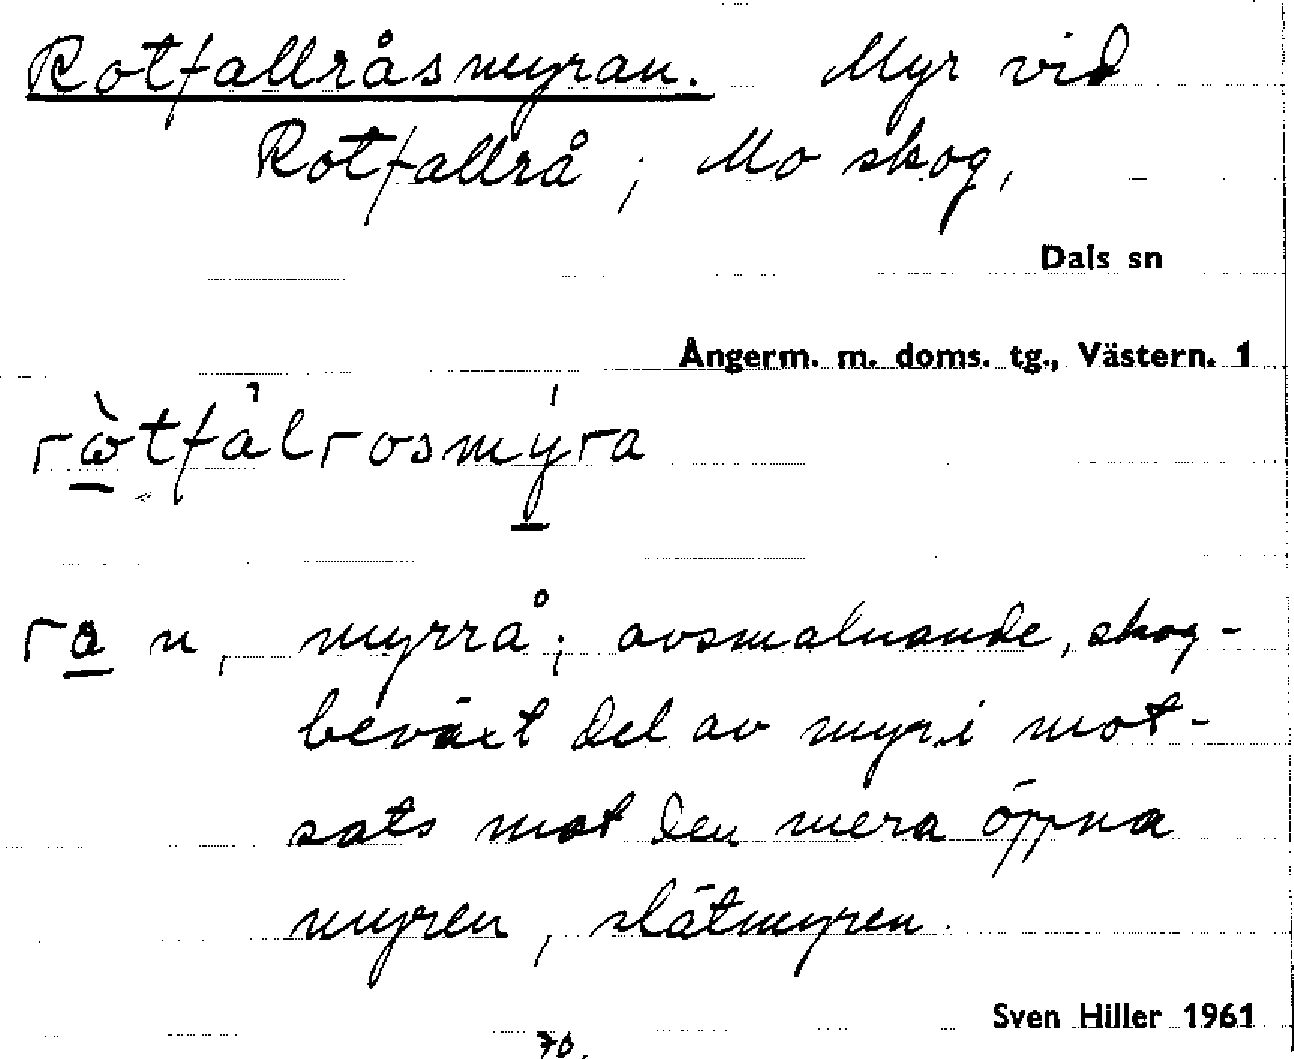 Rotfallråsmyran. Myr vid
Rotfallrå; Mo skog,
Dals sn
Ångerm. m. doms. tg., Västern. 1
rὼtfàlrosmýra
ra n, myrrå; avsmalnande, skog-
beväxt del av myr i mot-
sats mot den mera öppna
myren, slåtmyren.
Sven Hiller 1961
70.